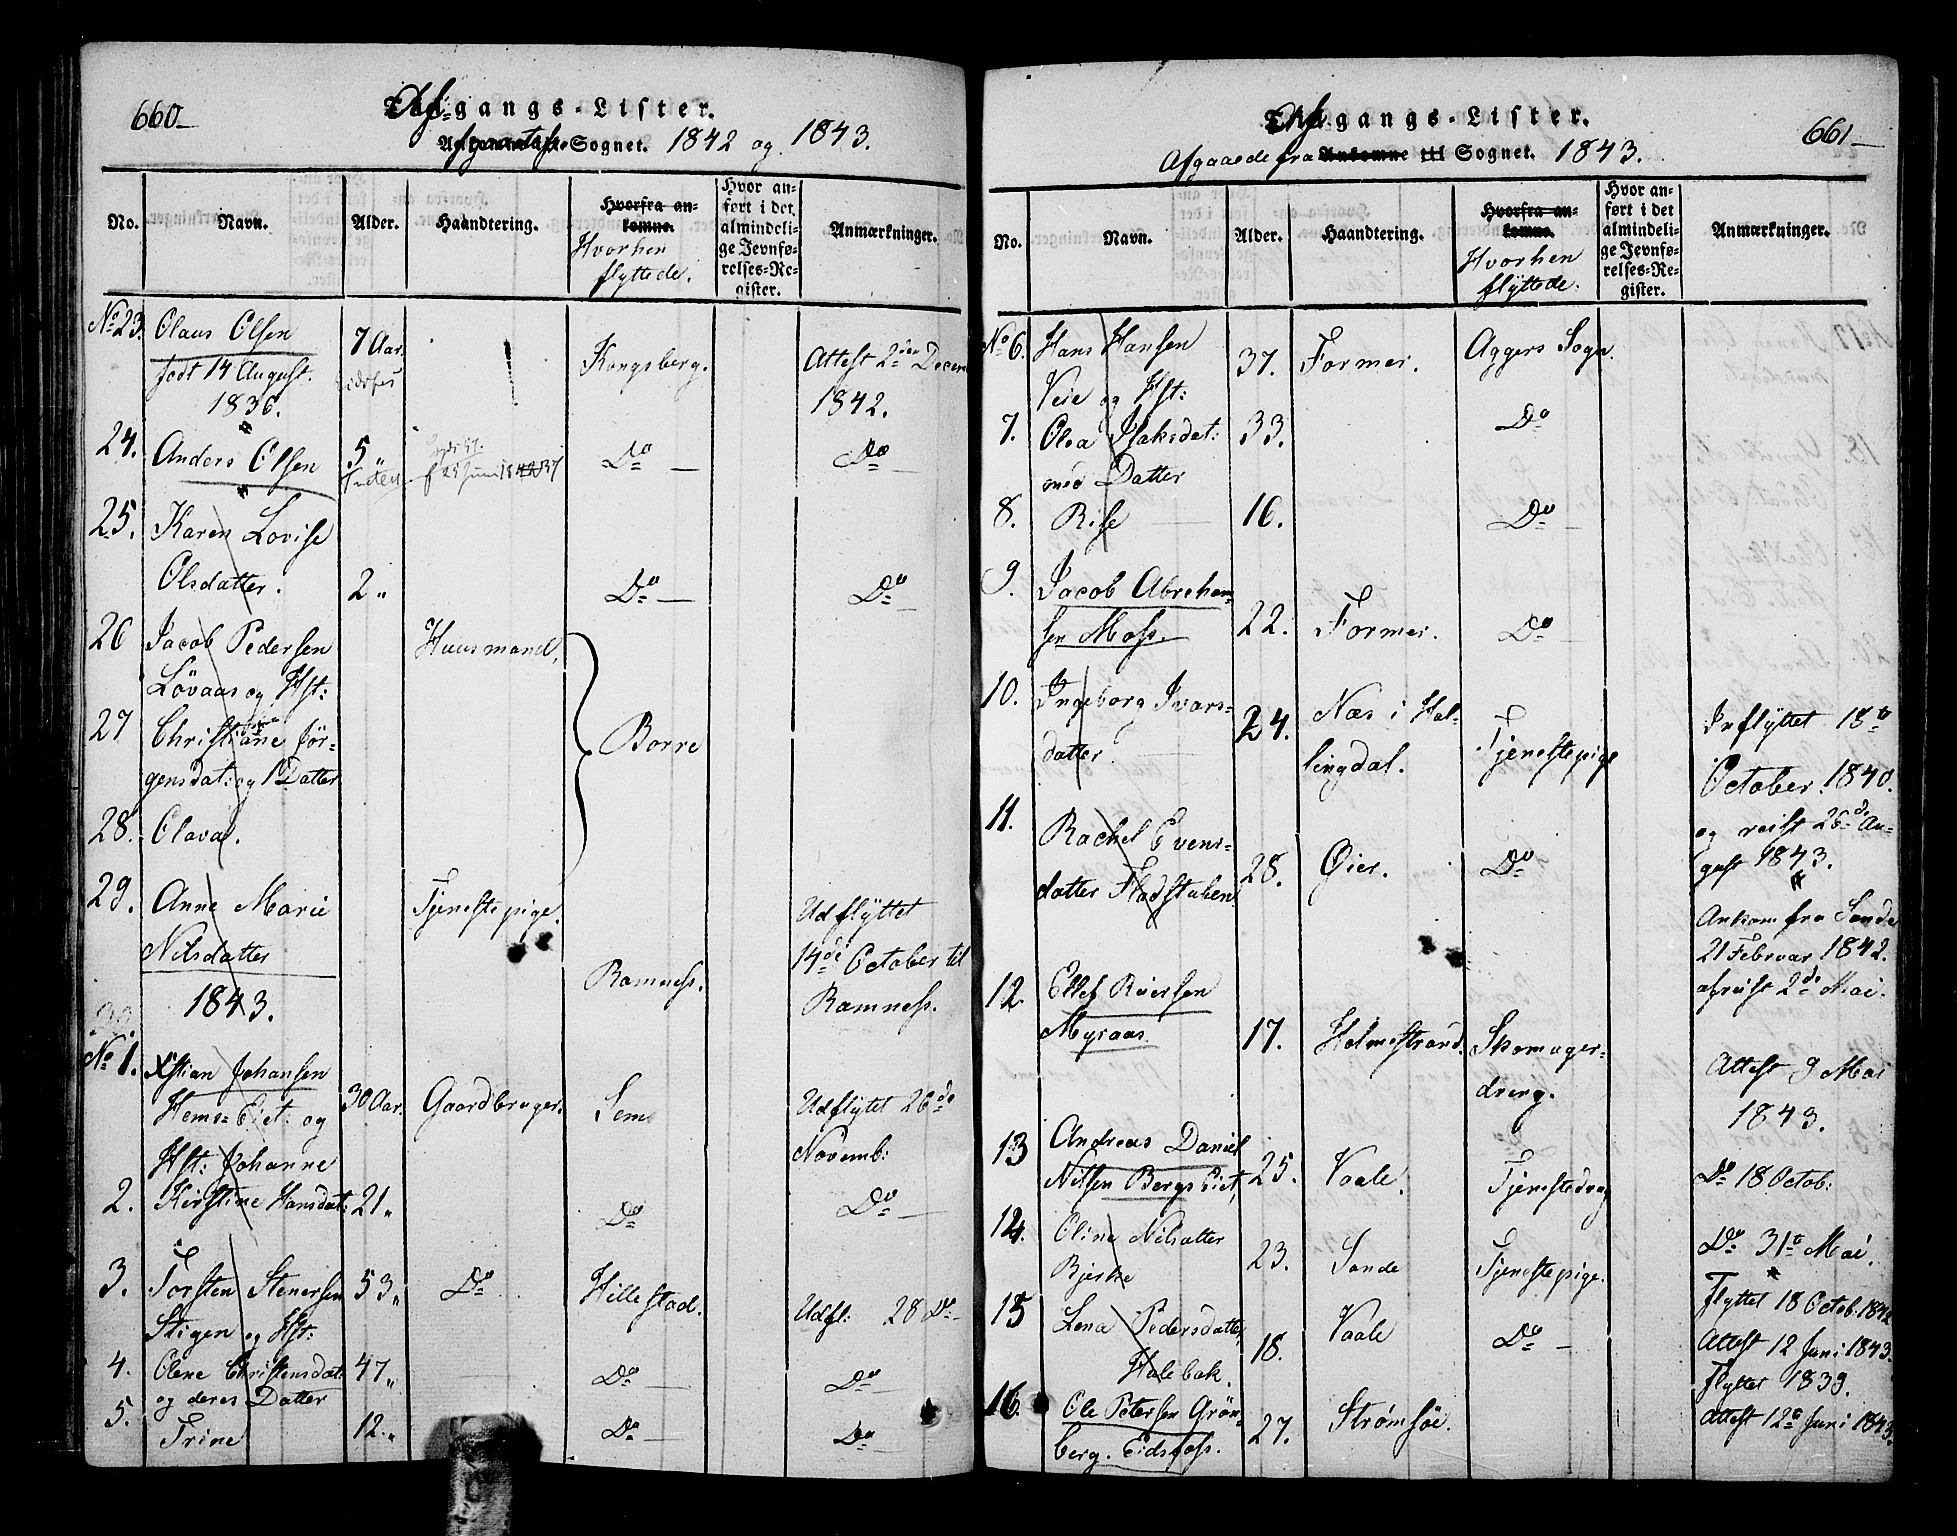 660
Afgangs-Lister.
Afgaaede fra Sognet. 1842 og 1843.
No. Navn. Alder. Haandtering. Hvorfra ankomne. Hvorhen flyttede. Hvor anført i det almindelige Jevnførelses-Register. Anmærkninger.
No 23. Olaus Olsen 7 Aar. Kongsberg. Attest 2den Decem
født 14 August. Eidsfos
1836. 1842.
24. Anders Olsen 5 " Do Do
f 25 Juni 1837
25. Karen Lovise
Olsdatter. 2 " Do Do
26 Jacob Pedersen Huusmand.
Løvaas og Hst:
27 Christiane Jør- Borre
gensdat: og 1 Datter
28. Olava.
29. Anne Marie Tjenestepige. Udflyttet
Nilsdatter Ramness. 14de October til
1843. Ramness.
No 1. Xstian Johansen 30 Aar. Gaardbruger. Sem Udflytet 26de
Hems-Eiet. og Novemb:
Hst: Johanne
2. Kirstine Hansdat: 21 " Do Do
3. Torsten Stenersen 53 " Do Hillestad. Udfl: 28 Do
Stigen og Hst:
4. Olene Christensdat: 47 " Do Do
og deres Datter
5. Trine 12 " Do Do
661
Afgangs-Lister.
Afgaaede fra Ankomne til Sognet. 1843.
No. Navn. Alder. Haandtering. Hvorfra ankomne. Hvorhen flyttede. Hvor anført i det almindelige Jevnførelses-Register. Anmærkninger.
No 6. Hans Hansen 37. Former. Aggers Sogn.
Veie og Hst:
7. Olea Isaksdat: 33. Do
med Datter
8. Rise 16. Do
9. Jacob Abreham-
sen Moss. 22. Former. Do
10. Ingeborg Ivars- 24. Næs i Hal- Tjenestepige Inflyttet 13de
datter lingdal. October 1840.
og reist 26de Au-
gust 1843.
11. Rachel Evens-
datter Fladstuben 28. Øier. Do Ankom fra Sande
21 Februar 1842.
afreist 2de Mai.
12. Ellef Riersen
Myraas. 17. Holmestrand. Skomager- Attest 9 Mai
dreng. 1843.
13 Andreas Daniel
Nilsen Bergs Eiet, 25. Vaale. Tjenestedrng Do 18 Octob:
14. Oline Nilsatter 23. Sande Tjenestepige. Do 31te Mai.
Bjerke
15 Lena Pedersdatter, 18. Vaale Do Flyttet 18 Octob. 1842
Holebak. Attest 12 Juni 1843.
16. Ole Petersen Grøn- 27. Strømsøe. Flyttet 1839.
berg. Eidsfoss. Attest 12te Juni 1843.